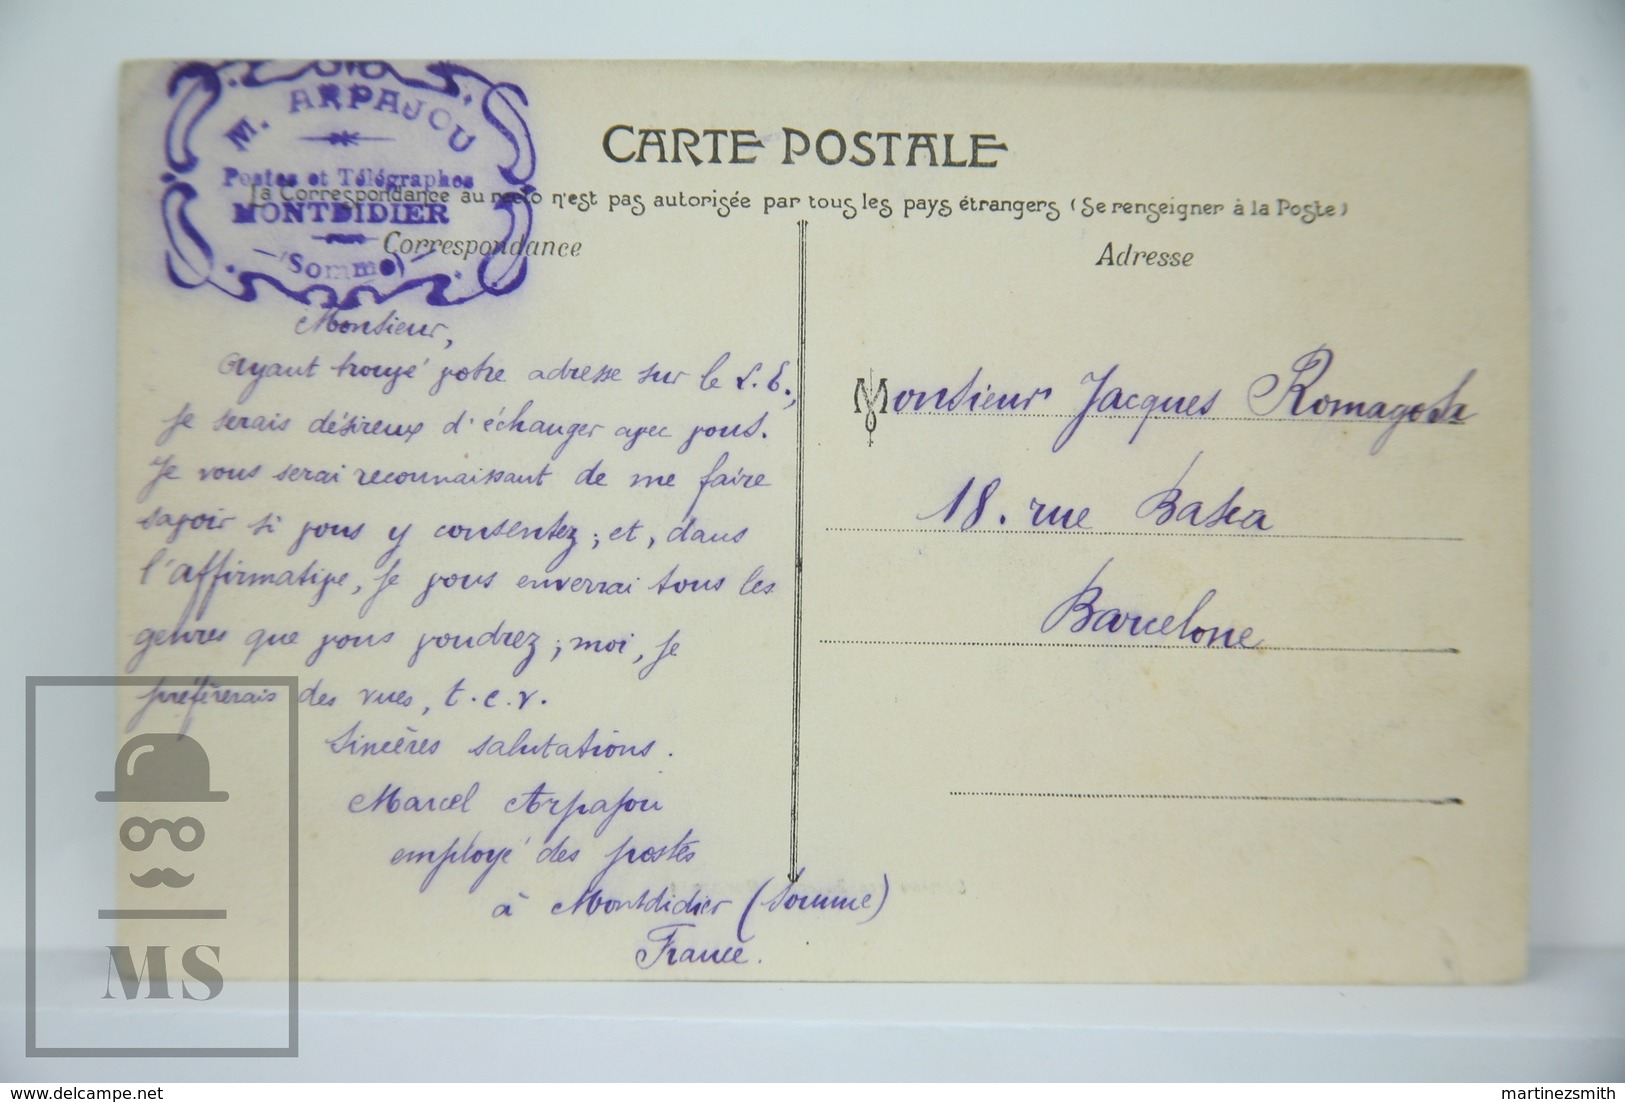 M. ARPAJOU
Postes et Télégraphes
MONTDIDIER
(Somme)
CARTE POSTALE
La Correspondance au recto n'est pas autorisée par tous les pays étrangers (Se renseigner à la Poste)
Correspondance
Monsieur,
Ayant trouvé votre adresse sur le L. E.,
je serais désireux d'échanger avec vous.
Je vous serai reconnaissant de me faire
savoir si vous y consentez; et, dans
l'affirmative, je vous enverrai tous les
genres que vous voudrez; moi, je
préfèrerais des vues, t.c.v.
Sincères salutations.
Marcel Arpajou
employé des postes
à Montdidier (Somme)
France.
Adresse
Monsieur Jacques Romagosa
18. rue Basea
Barcelone
MS
delcampe.net
martinezsmith